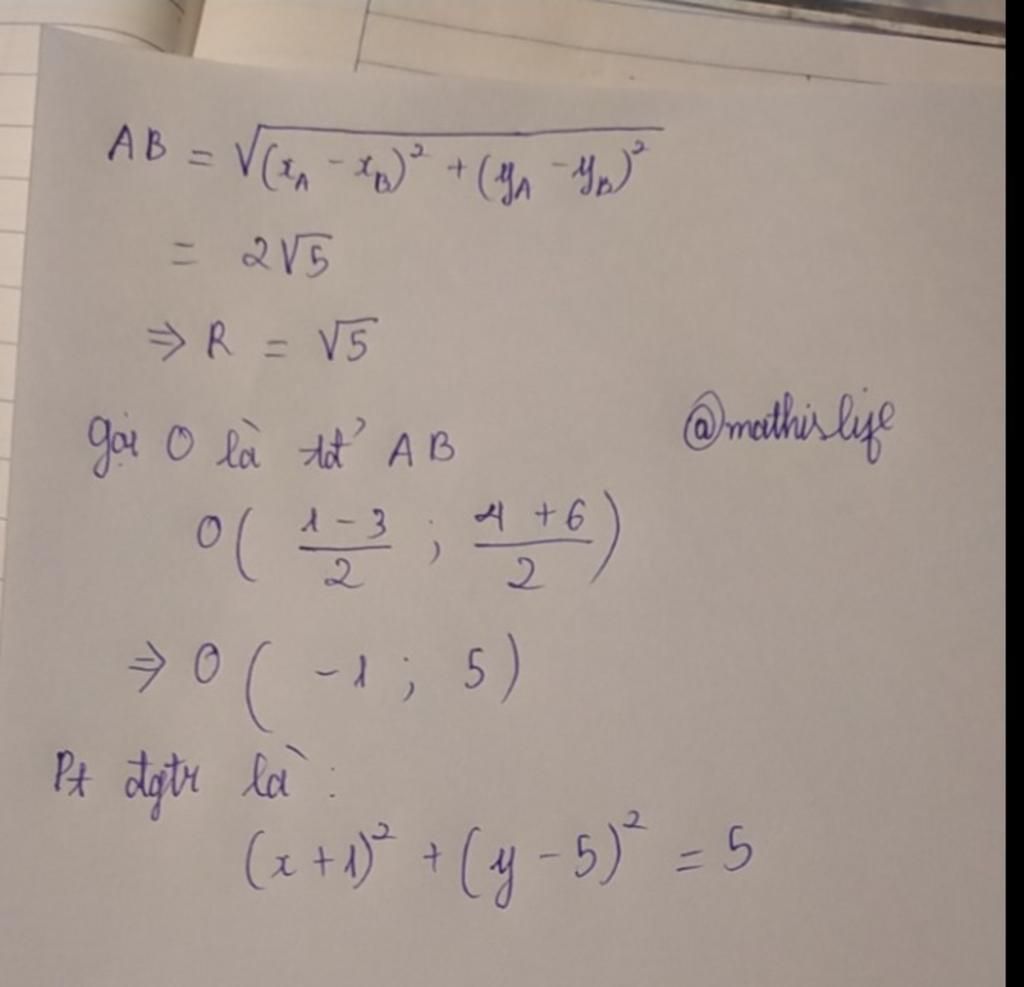 AB = √((x_A - x_B)² + (y_A - y_B)²)
= 2√5
⇒ R = √5
gọi O là tđ' AB
@mathislife
O( (1-3)/2 ; (4+6)/2 )
⇒ O( -1 ; 5)
Pt đgtr là :
(x+1)² + (y-5)² = 5